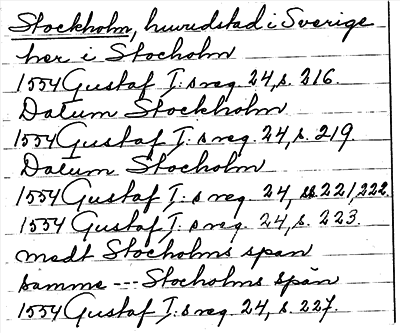 Stockholm, huvudstad i Sverige
her i Stocholm
1554 Gustaf I:s reg. 24, s. 216.
Datum Stockholm
1554 Gustaf I:s reg. 24, s. 219.
Datum Stocholm
1554 Gustaf I:s reg. 24, ss 221, 222.
1554 Gustaf I:s reg. 24, s. 223.
medt Stocholms span
samme --- Stocholms spån
1554 Gustaf I:s reg. 24, s. 227.